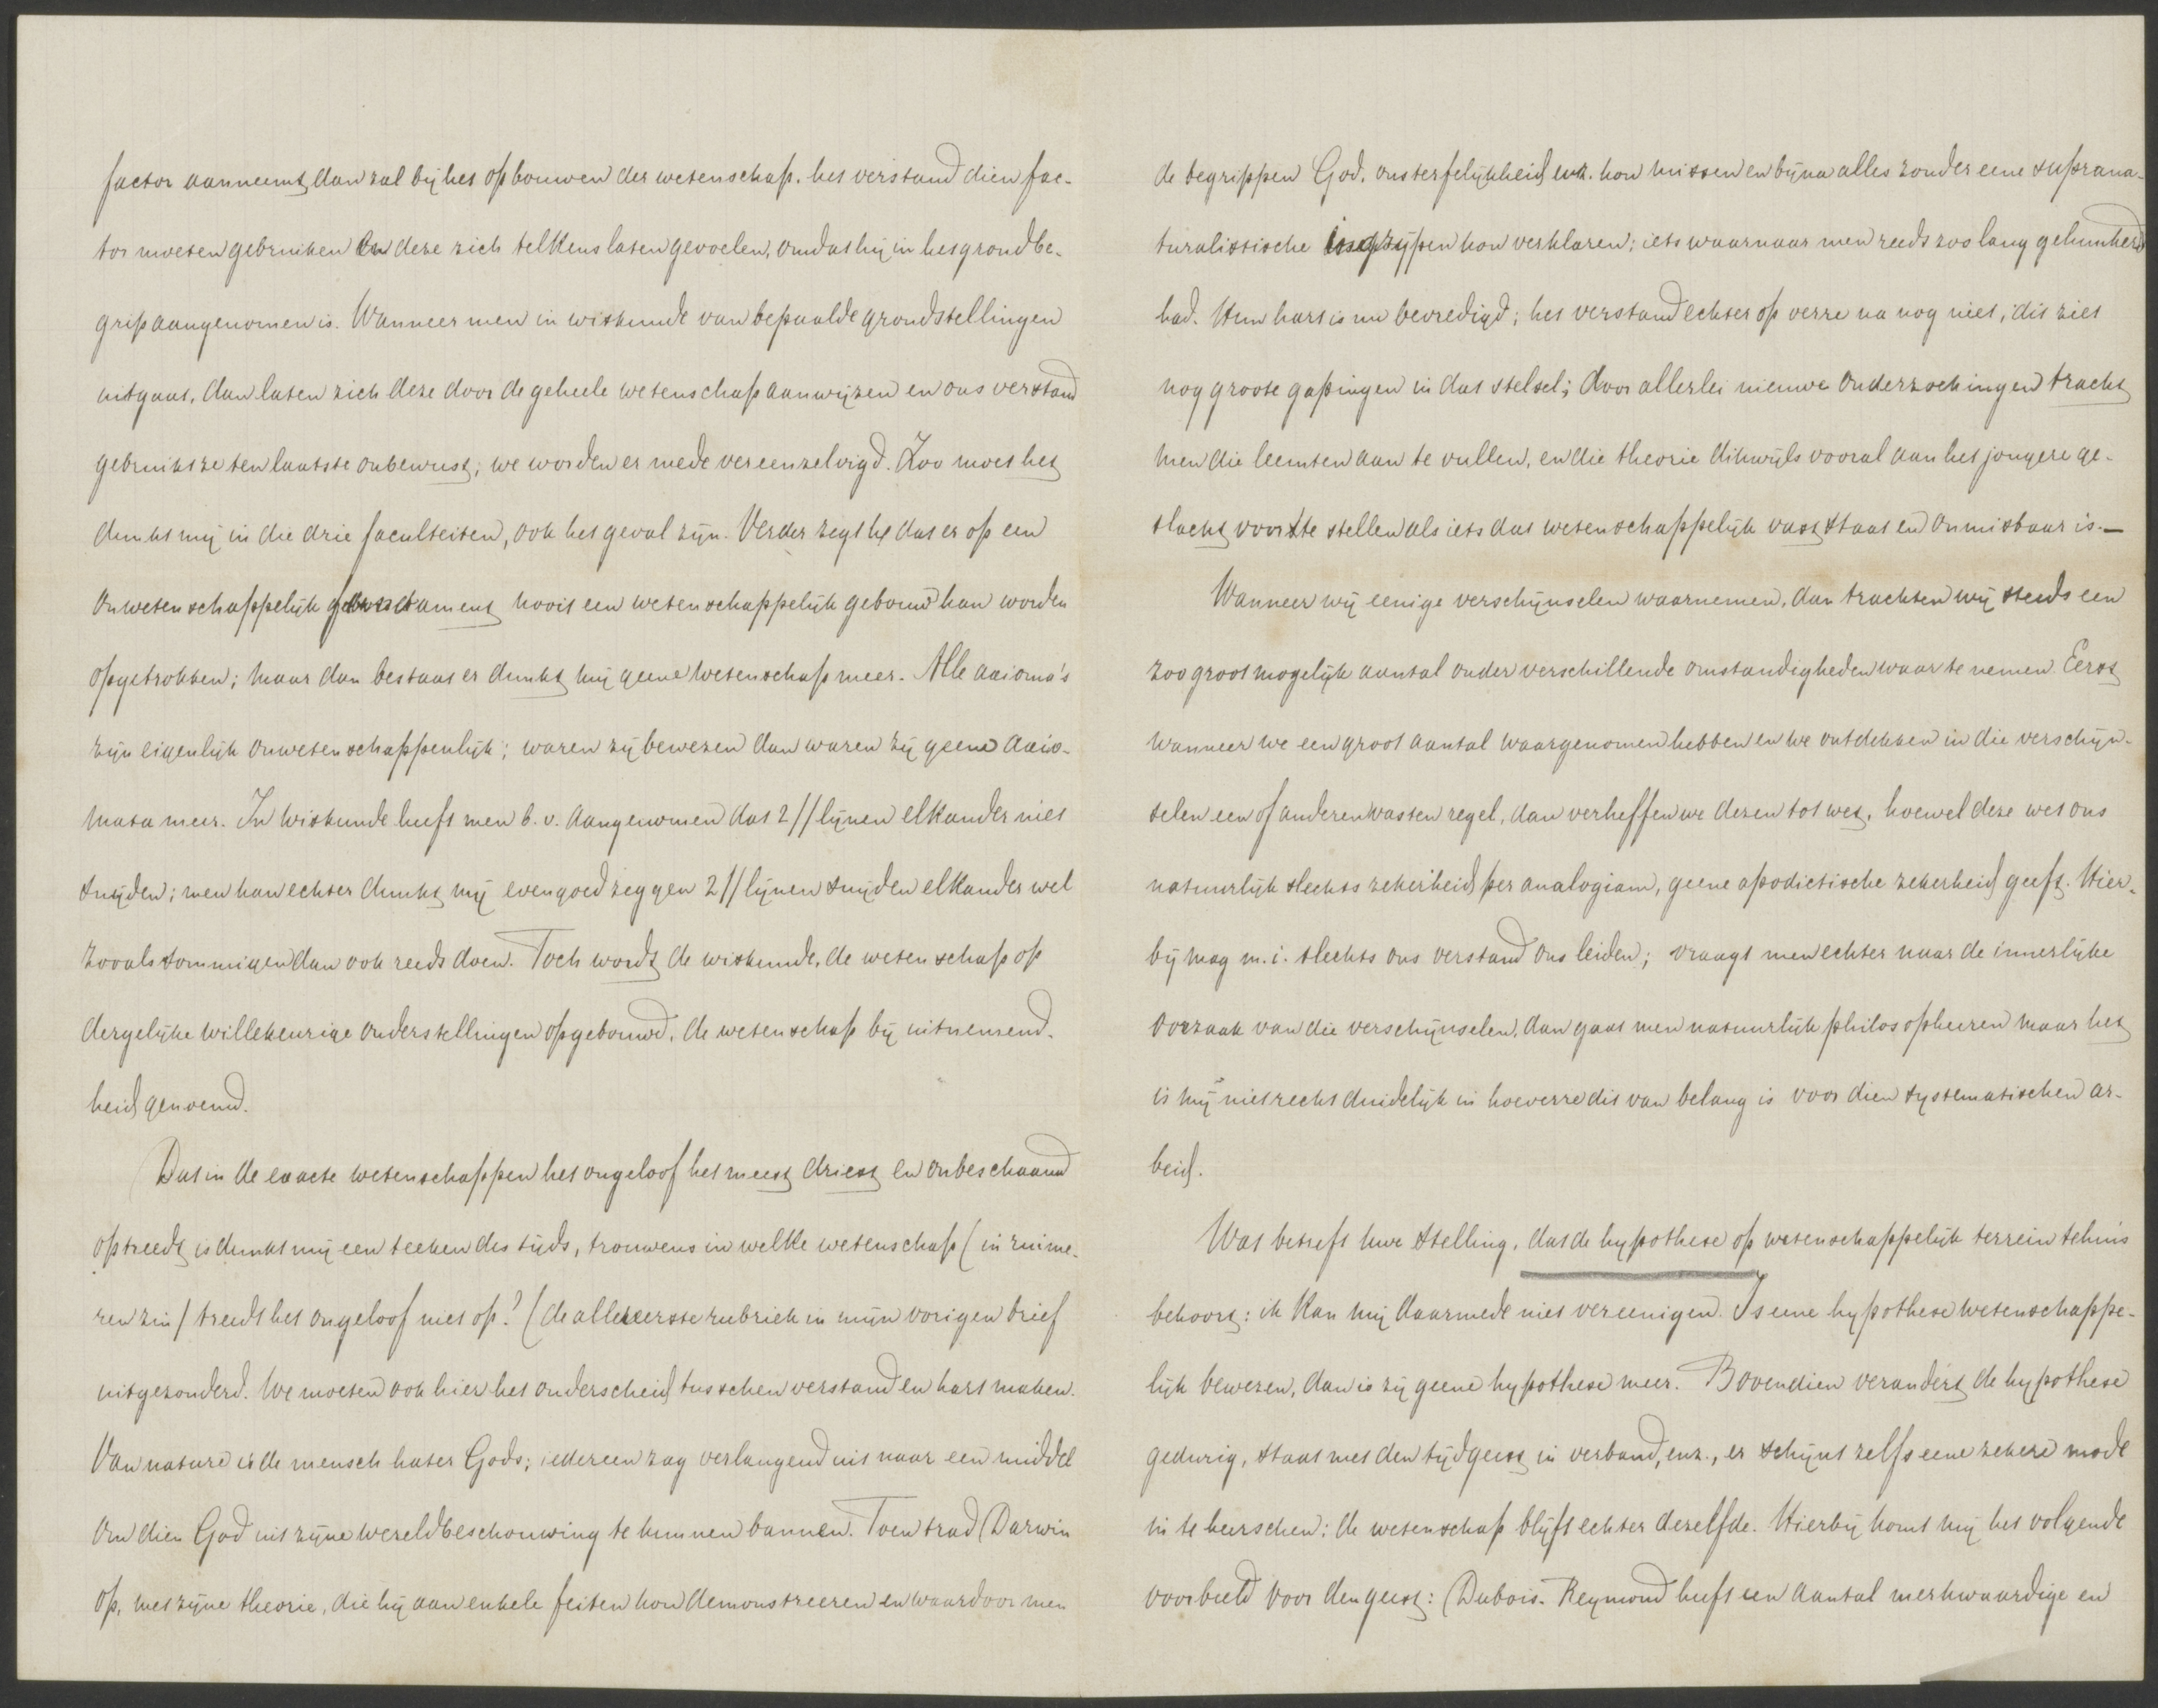 factor aanneemt, dan zal bij het opbouwen der wetenschap, het verstand dien fac-
tor moeten gebruiken en deze zich telkens laten gevoelen, omdat hij in het grondbe-
grip aangenomen is. Wanneer men in wiskunde van bepaalde grondstellingen
uitgaat, dan laten zich deze door de geheele wetenschap aanwijzen en ons verstand
gebruikt ze ten laatste onbewust; we worden er mede vereenzelvigd. Zoo moet het
dunkt mij in die drie faculteiten, ook het geval zijn. Verder zegt hij dat er op een
onwetenschappelijk fundament nooit een wetenschappelijk gebouw kan worden
opgetrokken; maar dan bestaat er dunkt mij geene wetenschap meer. Alle axioma's
zijn eigenlijk onwetenschappenlijk; waren zij bewezen dan waren zij geene axio-
mata meer. In wiskunde heeft men b.v. aangenomen dat 2 // lijnen elkander niet
snijden; men kan echter dunkt mij evengoed zeggen 2 // lijnen snijden elkander wel
zooals sommigen dan ook reeds doen. Toch wordt de wiskunde, de wetenschap op
dergelijke willekeurige onderstellingen opgebouwd, de wetenschap bij uitnemend-
heid genoemd.
Dat in de exacte wetenschappen het ongeloof het meest driest en onbeschaamd
optreedt is dunkt mij een teeken des tijds, trouwens in welke wetenschap (in ruime-
ren zin) treedt het ongeloof niet op? (de allereerste rubriek in mijn vorigen brief
uitgezonderd. We moeten ook hier het onderscheid tusschen verstand en hart maken.
Van nature is de mensch hater Gods; iedereen zag verlangend uit naar een middel
om dien God uit zijne wereldbeschouwing te kunnen bannen. Toen trad Darwin
op, met zijne theorie, die hij aan enkele feiten kon demonstreeren en waardoor men
de begrippen God, onsterfelijkheid enz. kon missen en bijna alles zonder eene suprana-
turalistische ingrijpen kon verklaren; iets waarnaar men reeds zoo lang gehunkerd
had. Hun hart is nu bevredigd; het verstand echter op verre na nog niet, dit ziet
nog groote gapingen in dat stelsel; door allerlei nieuwe onderzoekingen tracht
men die leemten aan te vullen, en die theorie dikwijls vooral aan het jongere ge-
slacht voor te stellen als iets dat wetenschappelijk vast staat en onmisbaar is. —
Wanneer wij eenige verschijnselen waarnemen, dan trachten wij steeds een
zoo groot mogelijk aantal onder verschillende omstandigheden waar te nemen. Eerst
wanneer we een groot aantal waargenomen hebben en we ontdekken in die verschijn-
selen een of anderen vasten regel, dan verheffen we dezen tot wet, hoewel deze wet ons
natuurlijk slechts zekerheid per analogiam, geene apodictische zekerheid geeft. Hier-
bij mag m.i. slechts ons verstand ons leiden; vraagt men echter naar de innerlijke
oorzaak van die verschijnselen, dan gaat men natuurlijk philosopheeren maar het
is mij niet recht duidelijk in hoeverre dit van belang is voor dien systematischen ar-
beid.
Wat betreft uwe stelling, dat de hypothese op wetenschappelijk terrein tehuis
behoort: ik kan mij daarmede niet vereenigen. Is eene hypothese wetenschappe-
lijk bewezen, dan is zij geene hypothese meer. Bovendien verandert de hypothese
gedurig, staat met den tijdgeest in verband, enz., er schijnt zelfs eene zekere mode
in te heerschen; de wetenschap blijft echter dezelfde. Hierbij komt mij het volgende
voorbeeld voor den geest: Dubois-Reymond heeft een aantal merkwaardige en